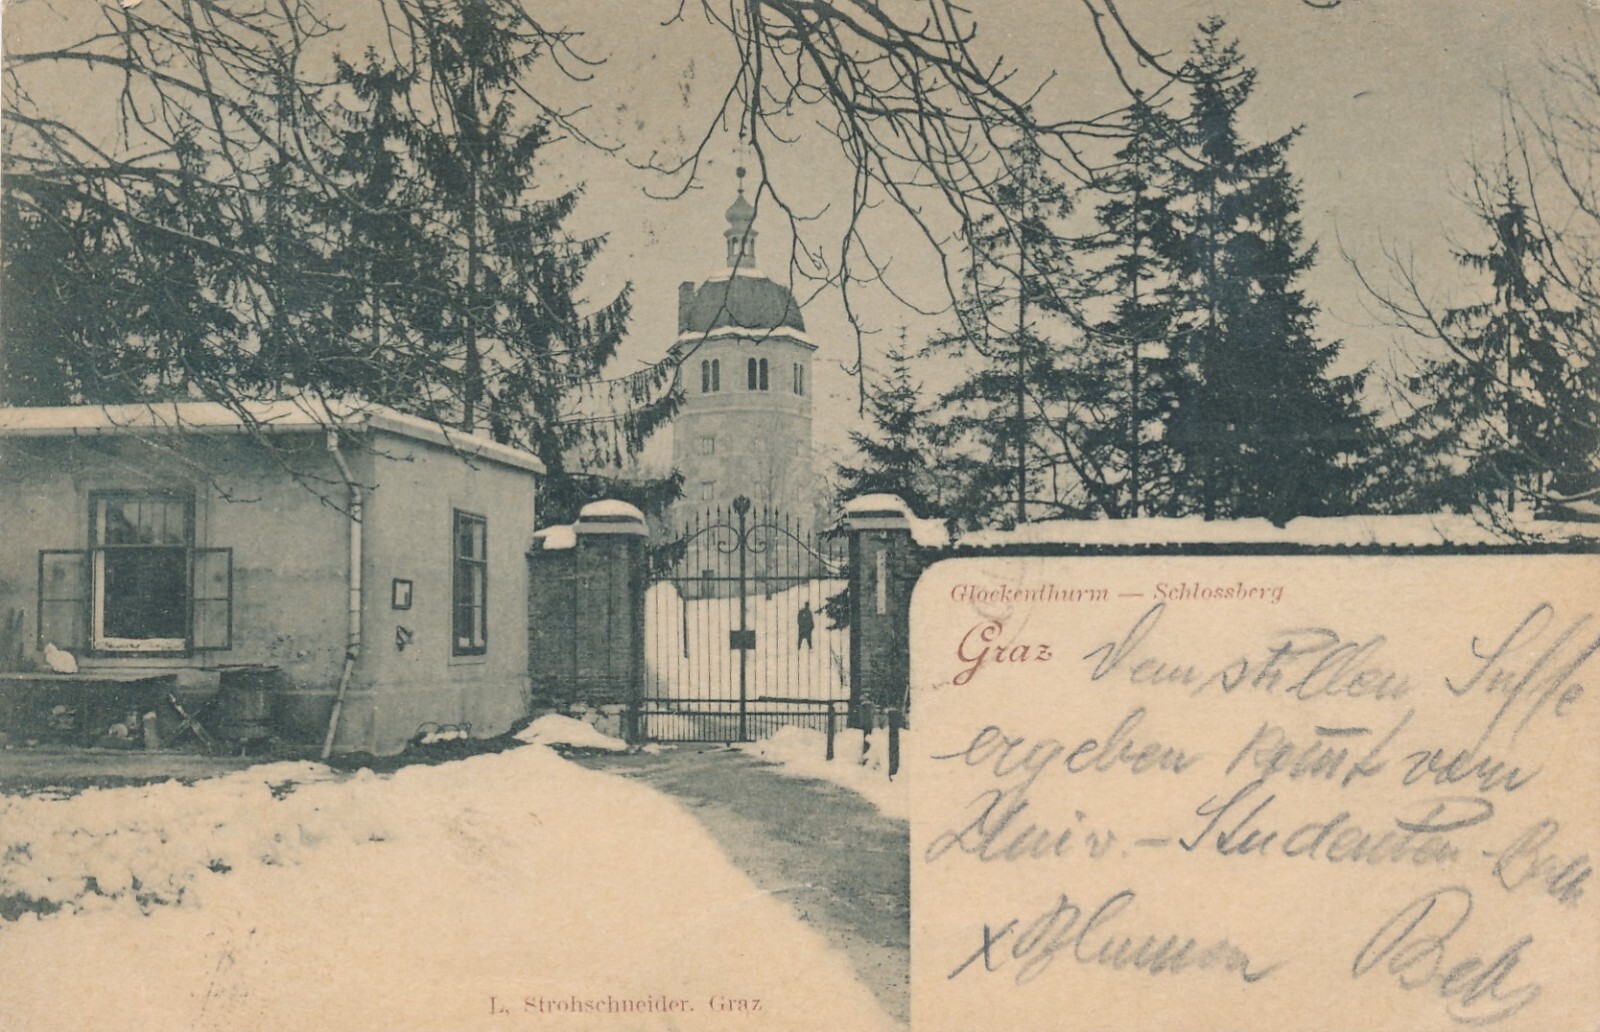 Glockenthurm — Schlossberg
Graz
Dem stillen Suffe
ergeben kommt vom
Univ.-Studenten-
x Blumen
L. Strohschneider. Graz